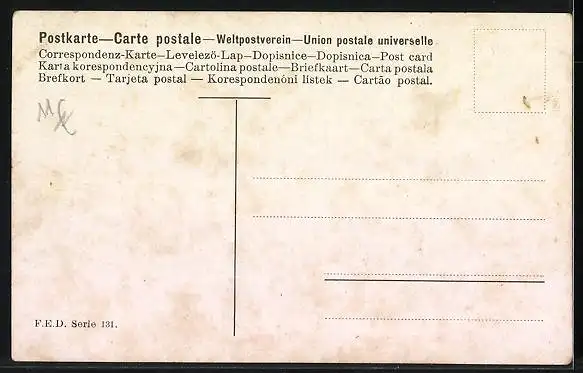 Postkarte—Carte postale—Weltpostverein—Union postale universelle
Correspondenz-Karte—Levelező-Lap—Dopisnice—Dopisnica—Post card
Karta korespondencyjna—Cartolina postale—Briefkaart—Carta postala
Brefkort — Tarjeta postal — Korespondenóni listek — Cartão postal.
F.E.D. Serie 131.